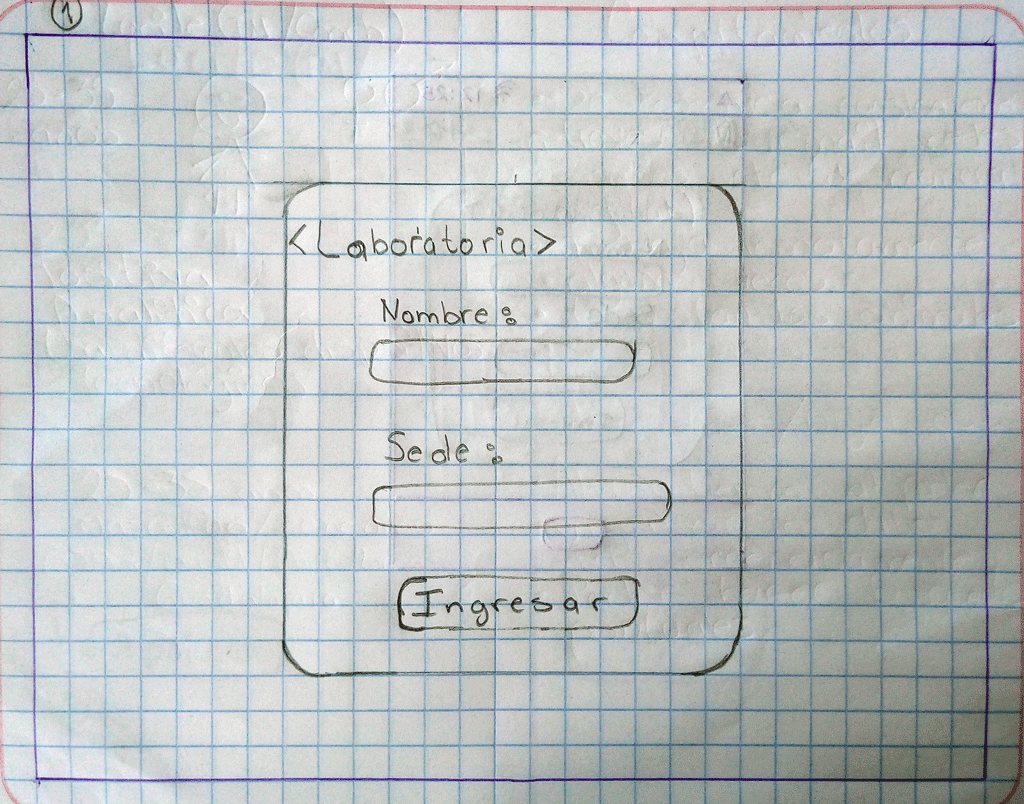 1
<Laboratoria>
Nombre:
Sede:
Ingresar